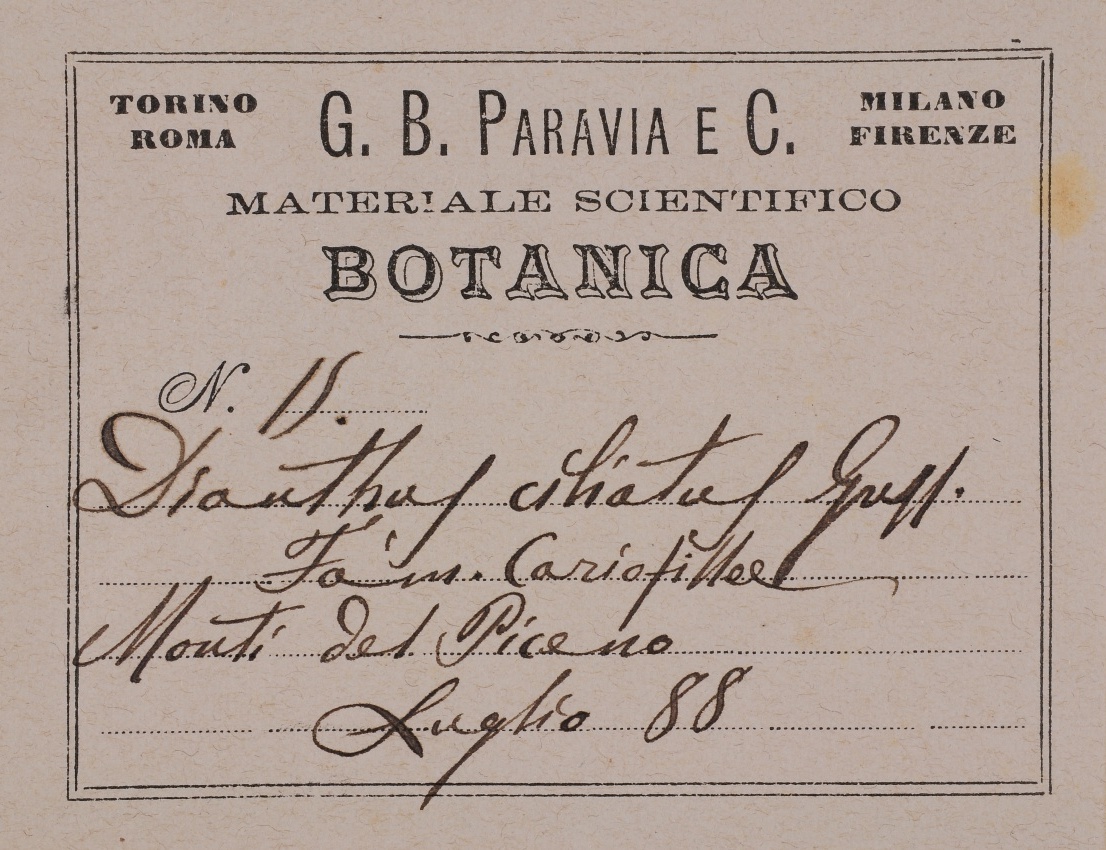 TORINO G. B. PARAVIA E C. MILANO
ROMA FIRENZE
MATERIALE SCIENTIFICO
BOTANICA
N. 15.
Dianthus ciliatus Guss.
Fam. Cariofillee
Monti del Piceno
Luglio 88